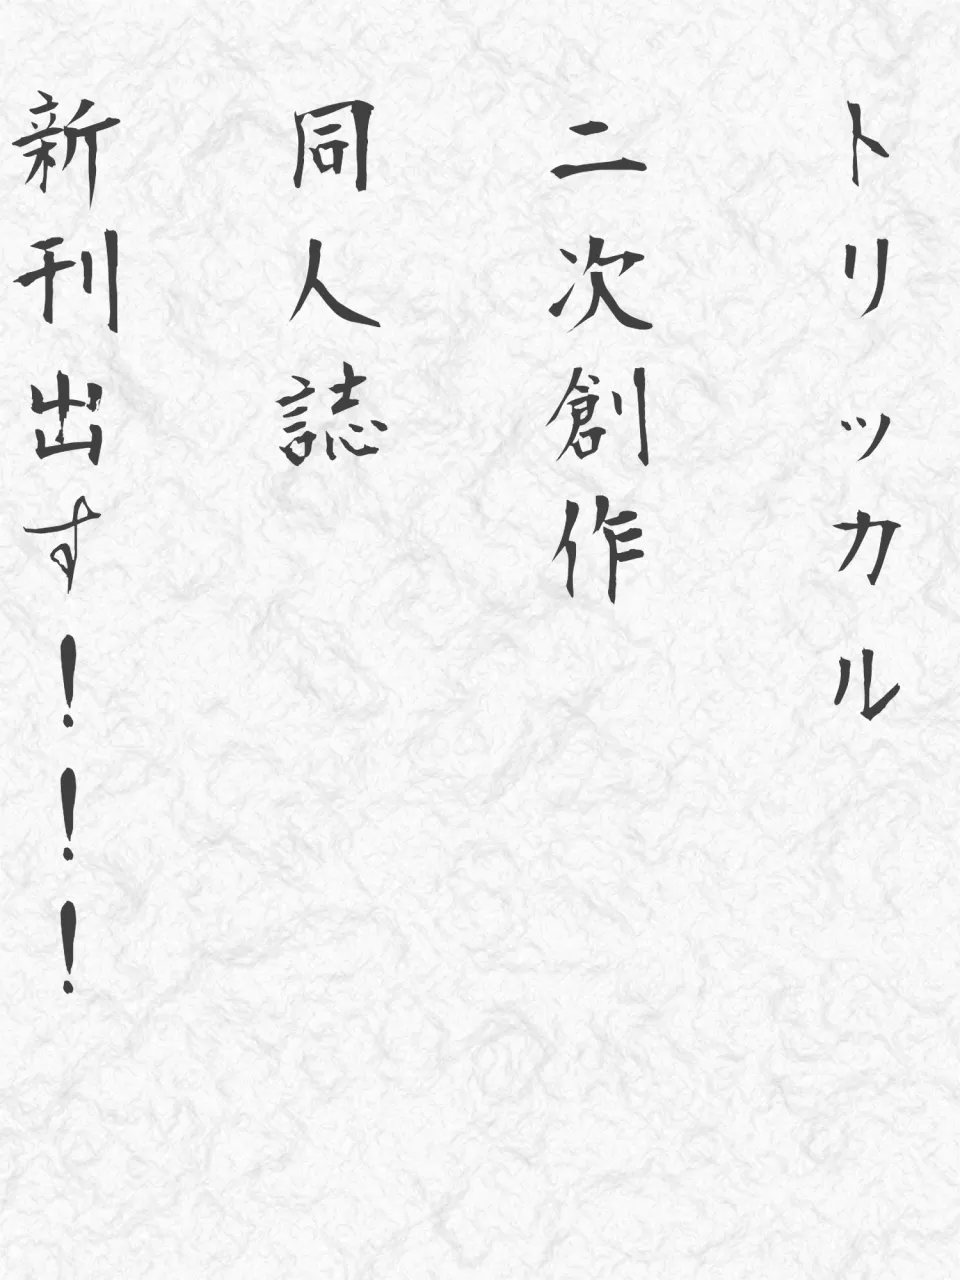 トリッカル
二次創作
同人誌
新刊出す！！！